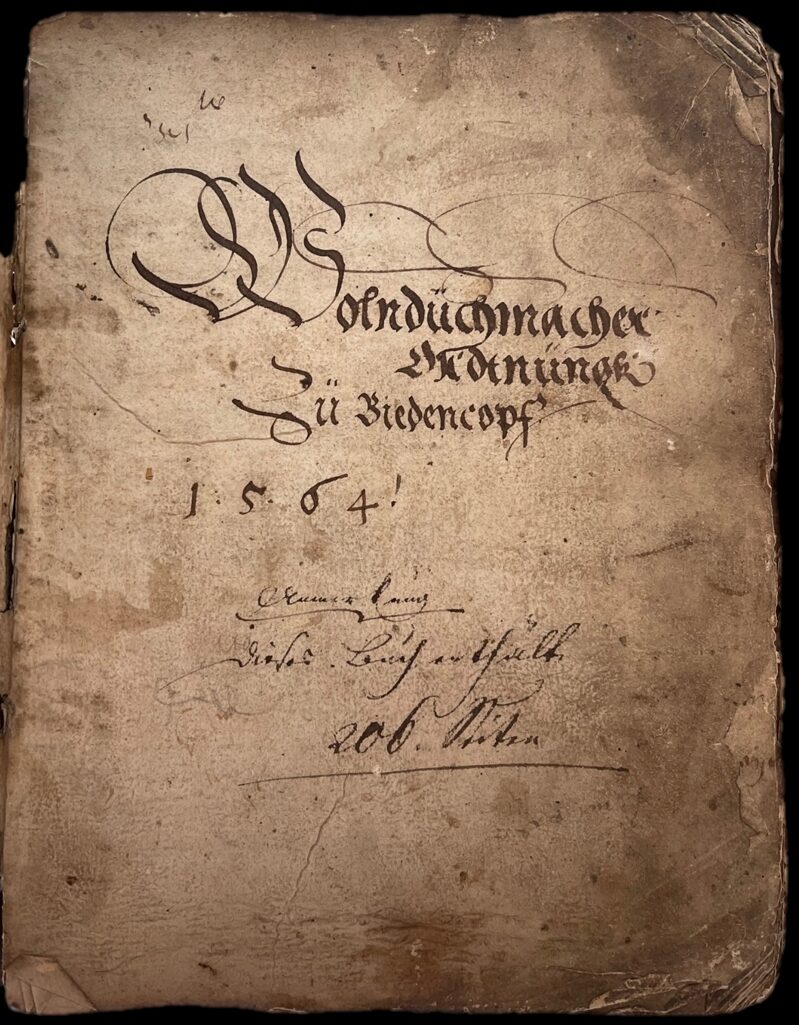 Wolndüchmacher
Ordtnüngk
Zü Biedencopf
1.5.64!
Anmerkung
Dieses Buch enthält
206. Seiten